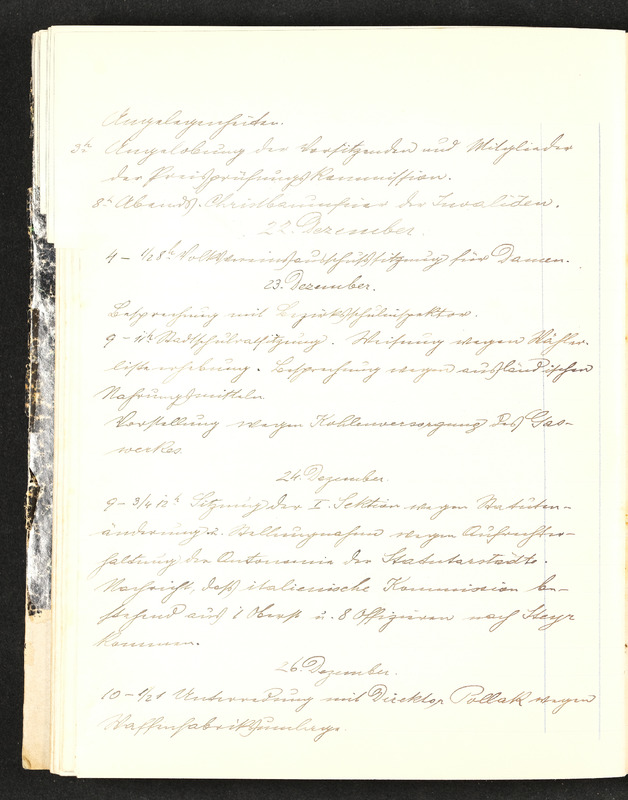 Angelegenheiten.
3h Angelobung der Vorsitzenden und Mitglieder
der Preisprüfungskommission.
8h Abends. Christbaumfeier der Invaliden.
22. Dezember.
4 – 1/2 8h Volksvereinsausschußsitzung für Damen.
23. Dezember.
Besprechung mit Bezirksschulinspektor.
9 – 11h Stadtschulratsitzung. Weisung wegen Wähler-
listeerhebung. Besprechung wegen ausländischen
Nahrungsmitteln
Vorstellung wegen Kohlenversorgung des Gas-
werkes
24. Dezember.
9 – 3/4 12h Sitzung der I. Sektion wegen Statuten-
änderung u. Stellungnahme wegen Aufrechter-
haltung der Autonomie der Statutarstädte.
Nachricht, daß italienische Kommission be-
stehend aus 1 Oberst u. 8 Offizieren nach Steyr
kommen.
26. Dezember.
10 – 1/2 1 Unterredung mit Direktor Pollak wegen
Waffenfabriksumlage.